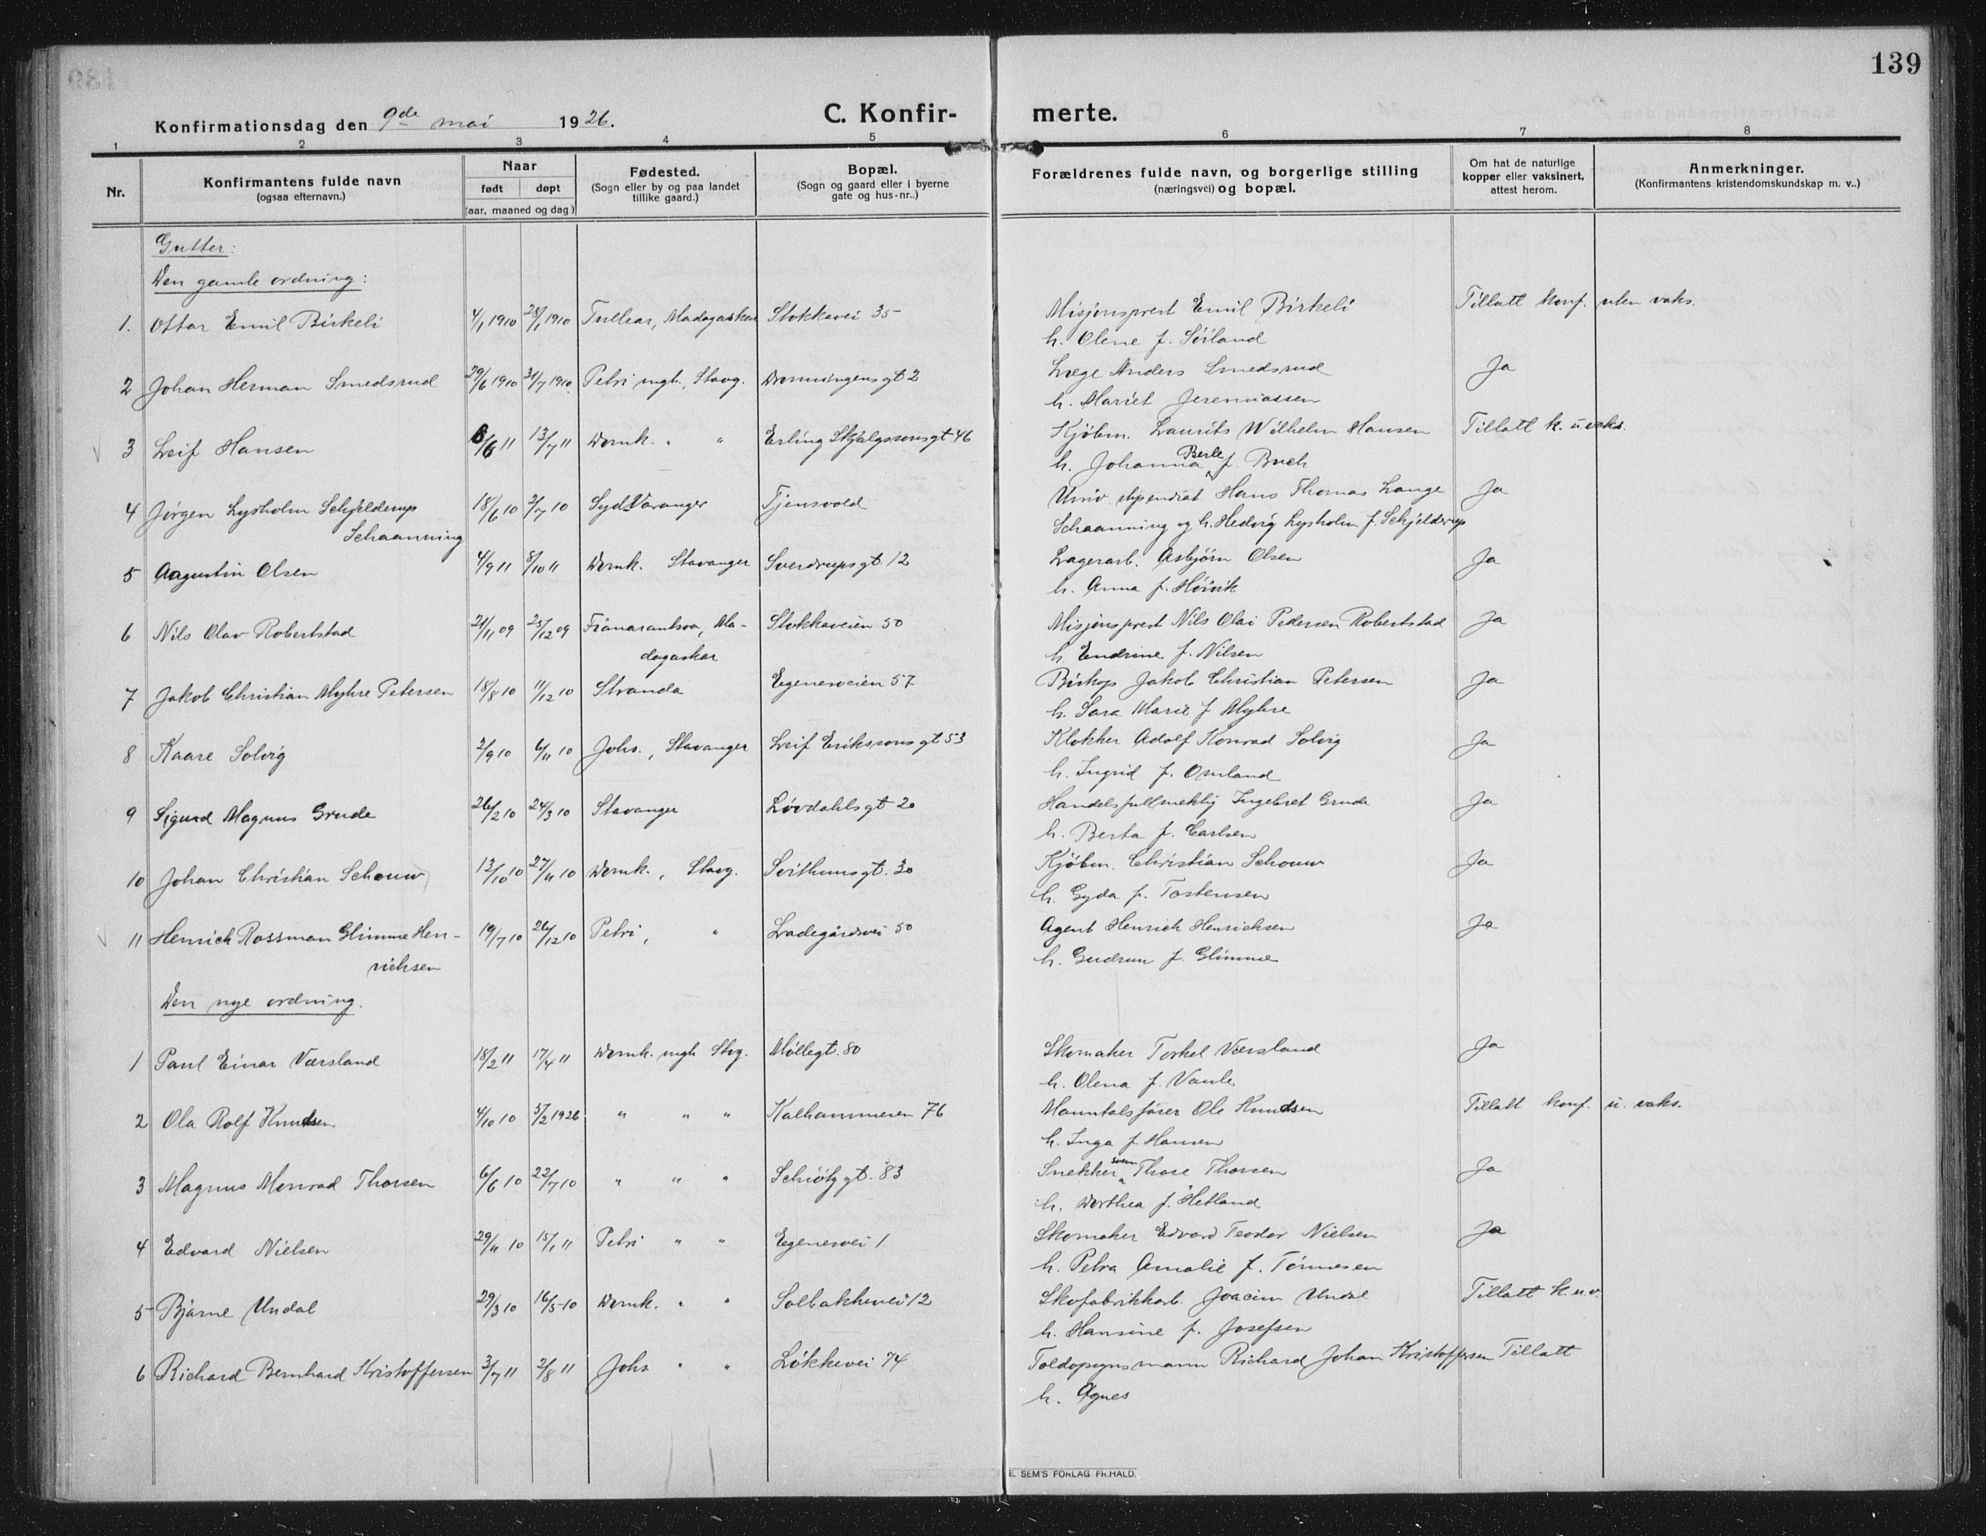 139
Konfirmationsdag den 9de mai 1926.
C. Konfir- merte.
1 2 3 4 5 6 7 8
Nr.
Konfirmantens fulde navn
(ogsaa efternavn.)
Naar
født døpt
(aar, maaned og dag)
Fødested.
(Sogn eller by og paa landet
tillike gaard.)
Bopæl.
(Sogn og gaard eller i byerne
gate og hus-nr.)
Forældrenes fulde navn, og borgerlige stilling
(næringsvei) og bopæl.
Om hat de naturlige
kopper eller vaksinert,
attest herom.
Anmerkninger.
(Konfirmantens kristendomskundskap m. v.)
Gutter:
Den gamle ordning:
1. Ottar Emil Birkeli 4/1 1910 28/1 1910 Tullear, Madagaskar Stokkavei 35 Misjonsprest Emil Birkeli Tillatt konf. uten vaks.
h. Olene f. Sörland
2 Johan Herman Smedsrud 29/6 1910 31/7 1910 Petri mgh., Stavg. Dronningensgt 2 Læge Anders Smedsrud Ja
h. Mariet Jeremiassen
3 Leif Hansen 8/6 11 13/7 11 Domk. " " Erling Skjalgssonsgt 46 Kjøbm. Laurits Wilhelm Hansen Tillatt k. u vaks.
h. Johanna Berle f. Buch
4 Jørgen Lysholm Schjelderup 18/6 10 3/7 10 Syd Varanger Tjensvold Univ. stipendiat Hans Thomas Lange Ja
Schaanning Schaanning og h. Hedvig Lysholm f. Schjelderup
5 Aagustin Olsen 4/9 11 8/10 11 Domk. Stavanger Sverdrupsgt. 12 Lagerarb. Asbjörn Olsen Ja
h. Anna f. Hövik
6 Nils Olav Robertstad 21/11 09 25/12 09 Fianarantsoa, Ma- Stokkaveien 50 Misjonsprest Nils Olai Pedersen Robertstad Ja
dagaskar h. Endrine f. Nilsen
7 Jakob Christian Myhre Petersen 18/8 10 11/12 10 Stranda Egenesveien 57 Biskop Jakob Christian Petersen Ja
h. Sara Marie f Myhre
8 Kaare Solvig 2/9 10 6/11 10 Johs., Stavanger Leif Erikssonsgt 53 Klokker Adolf Konrad Solvig Ja
h. Ingrid f. Omland
9 Sigurd Magnus Grude 26/2 10 24/3 10 Stavanger Løvdahlsgt 20 Handelsfullmektig Ingebret Grude Ja
h. Berta f. Carlsen
10 Johan Christian Schouw 13/10 10 27/11 10 Domk., Stavg. Svithunsgt. 30 Kjøbm. Christian Schouw Ja
h. Gyda f. Tostensen
11 Henrich Rossman Glimme Hen- 19/7 10 26/12 10 Petri, " Ladegårdsvei 50 Agent Henrich Henrichsen Ja
richsen h. Gudrun f. Glimme
Den nye ordning.
1 Paul Einar Værsland 18/2 11 17/4 11 Domk. mgh Stvg. Møllegt. 80 Skomaker Torkel Værsland Ja
h. Olena f. Vaule
2 Ola Rolf Knudsen 4/10 10 5/2 1926 " " " Kalhammeren 76 Manntalsfører Ole Knudsen Tillatt konf. u. vaks.
h. Inga f. Hansen
3 Magnus Monrad Thorsen 6/6 10 22/7 10 " " " Schiötzgt. 83 Snekker Thore Thorsen Ja
h. Dorthea f. Hetland
4 Edvard Nielsen 29/11 10 15/1 11 Petri " " Egenesvei 1 Skomaker Edvard Teodor Nielsen Ja
h. Petra Amalie f. Tönnesen
5 Bjarne Undal 29/3 10 16/5 10 Domk. " " Solbakkevei 12 Skofabrikkarb. Joacim Undal Tillatt k. u. v.
h. Hansine f. Josefsen
6 Richard Bernhard Kristoffersen 3/7 11 2/8 11 Johs " " Løkkevei 74 Toldopsynsmann Richard Johan Kristoffersen Tillatt
h. Agnes
E. SEM'S FORLAG FR.HALD.